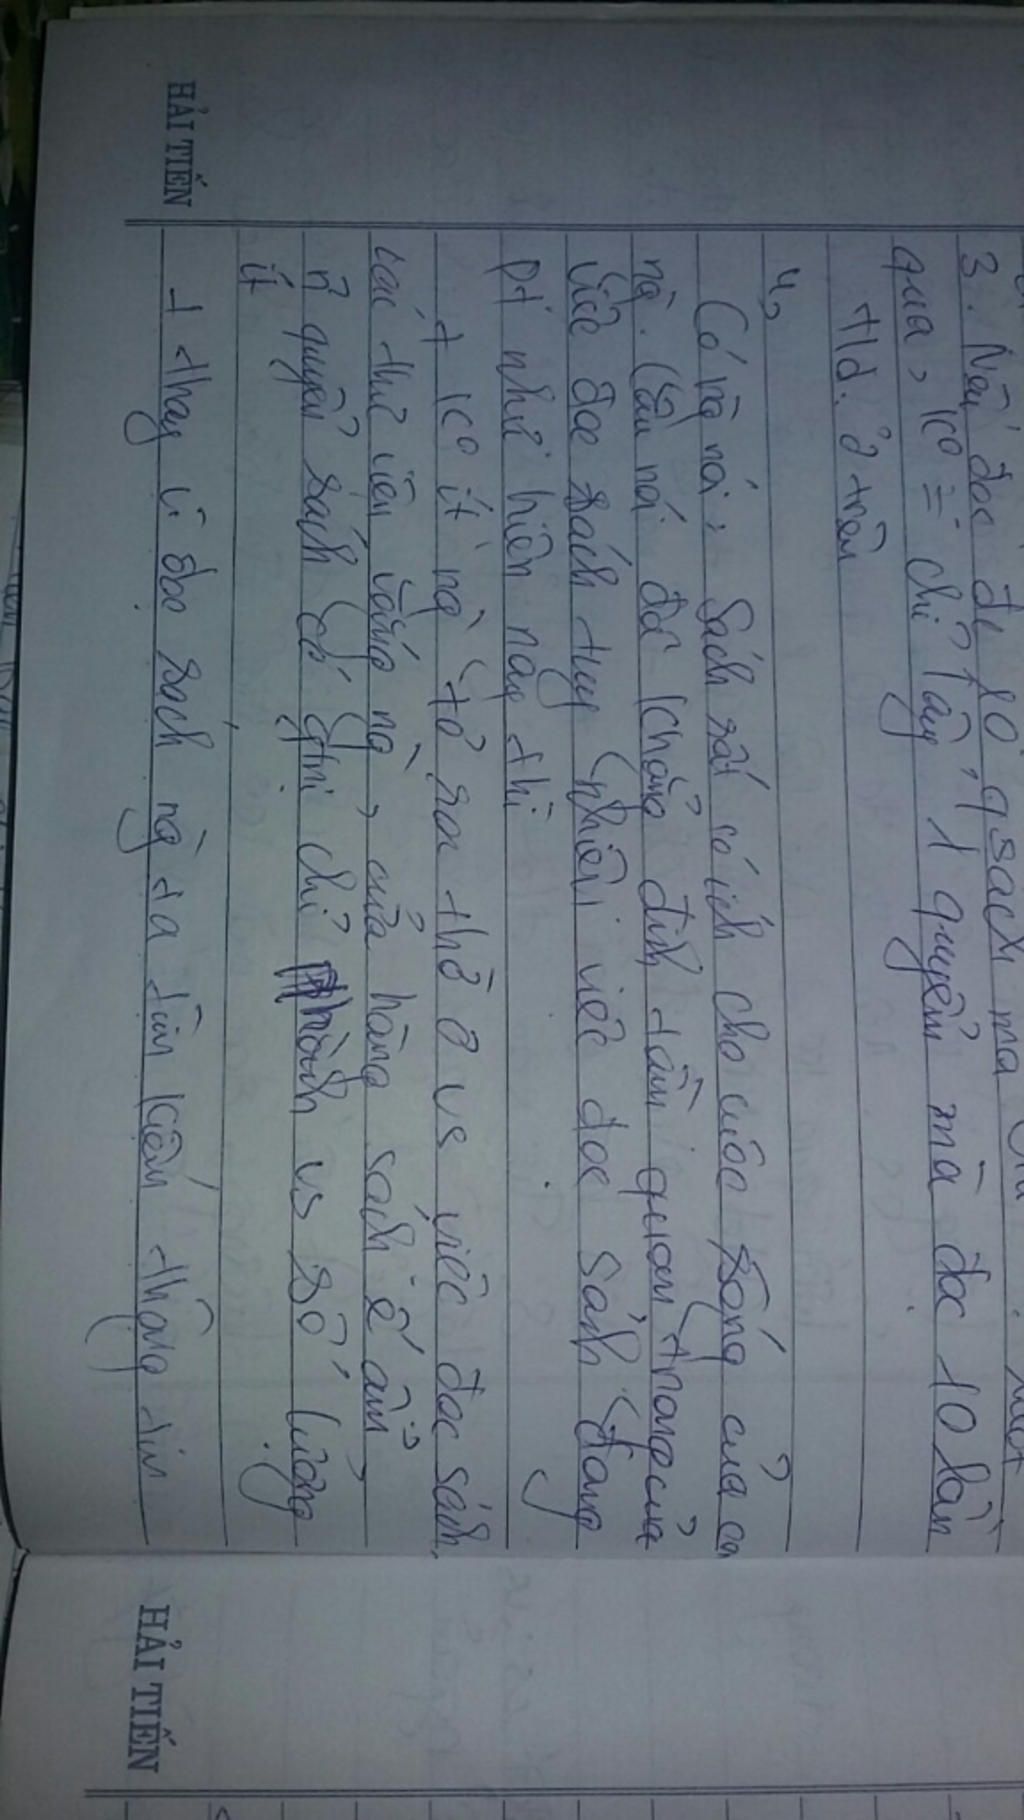 3. Nếu đọc đc 10 q sách mà
qua, ko = chỉ lấy 1 quyển mà đọc 10 lần
Hđ. ở trên
4,
Có ng nói: Sách rất có ích cho cuộc sống của con
ng. Câu nói đã khẳng định tầm quan trọng của
việc đọc sách tuy nhiên việc đọc sách đang
pt như hiện nay thì
+ ko ít ng tỏ ra thờ ơ vs việc đọc sách,
các thư viện vắng ng, cửa hàng sách ế ẩm,
n quyển sách có gtrị chỉ thành vs số lượng
ít
+ thay vì đọc sách ng ta tìm kiếm thông tin
HẢI TIẾN
HẢI TIẾN